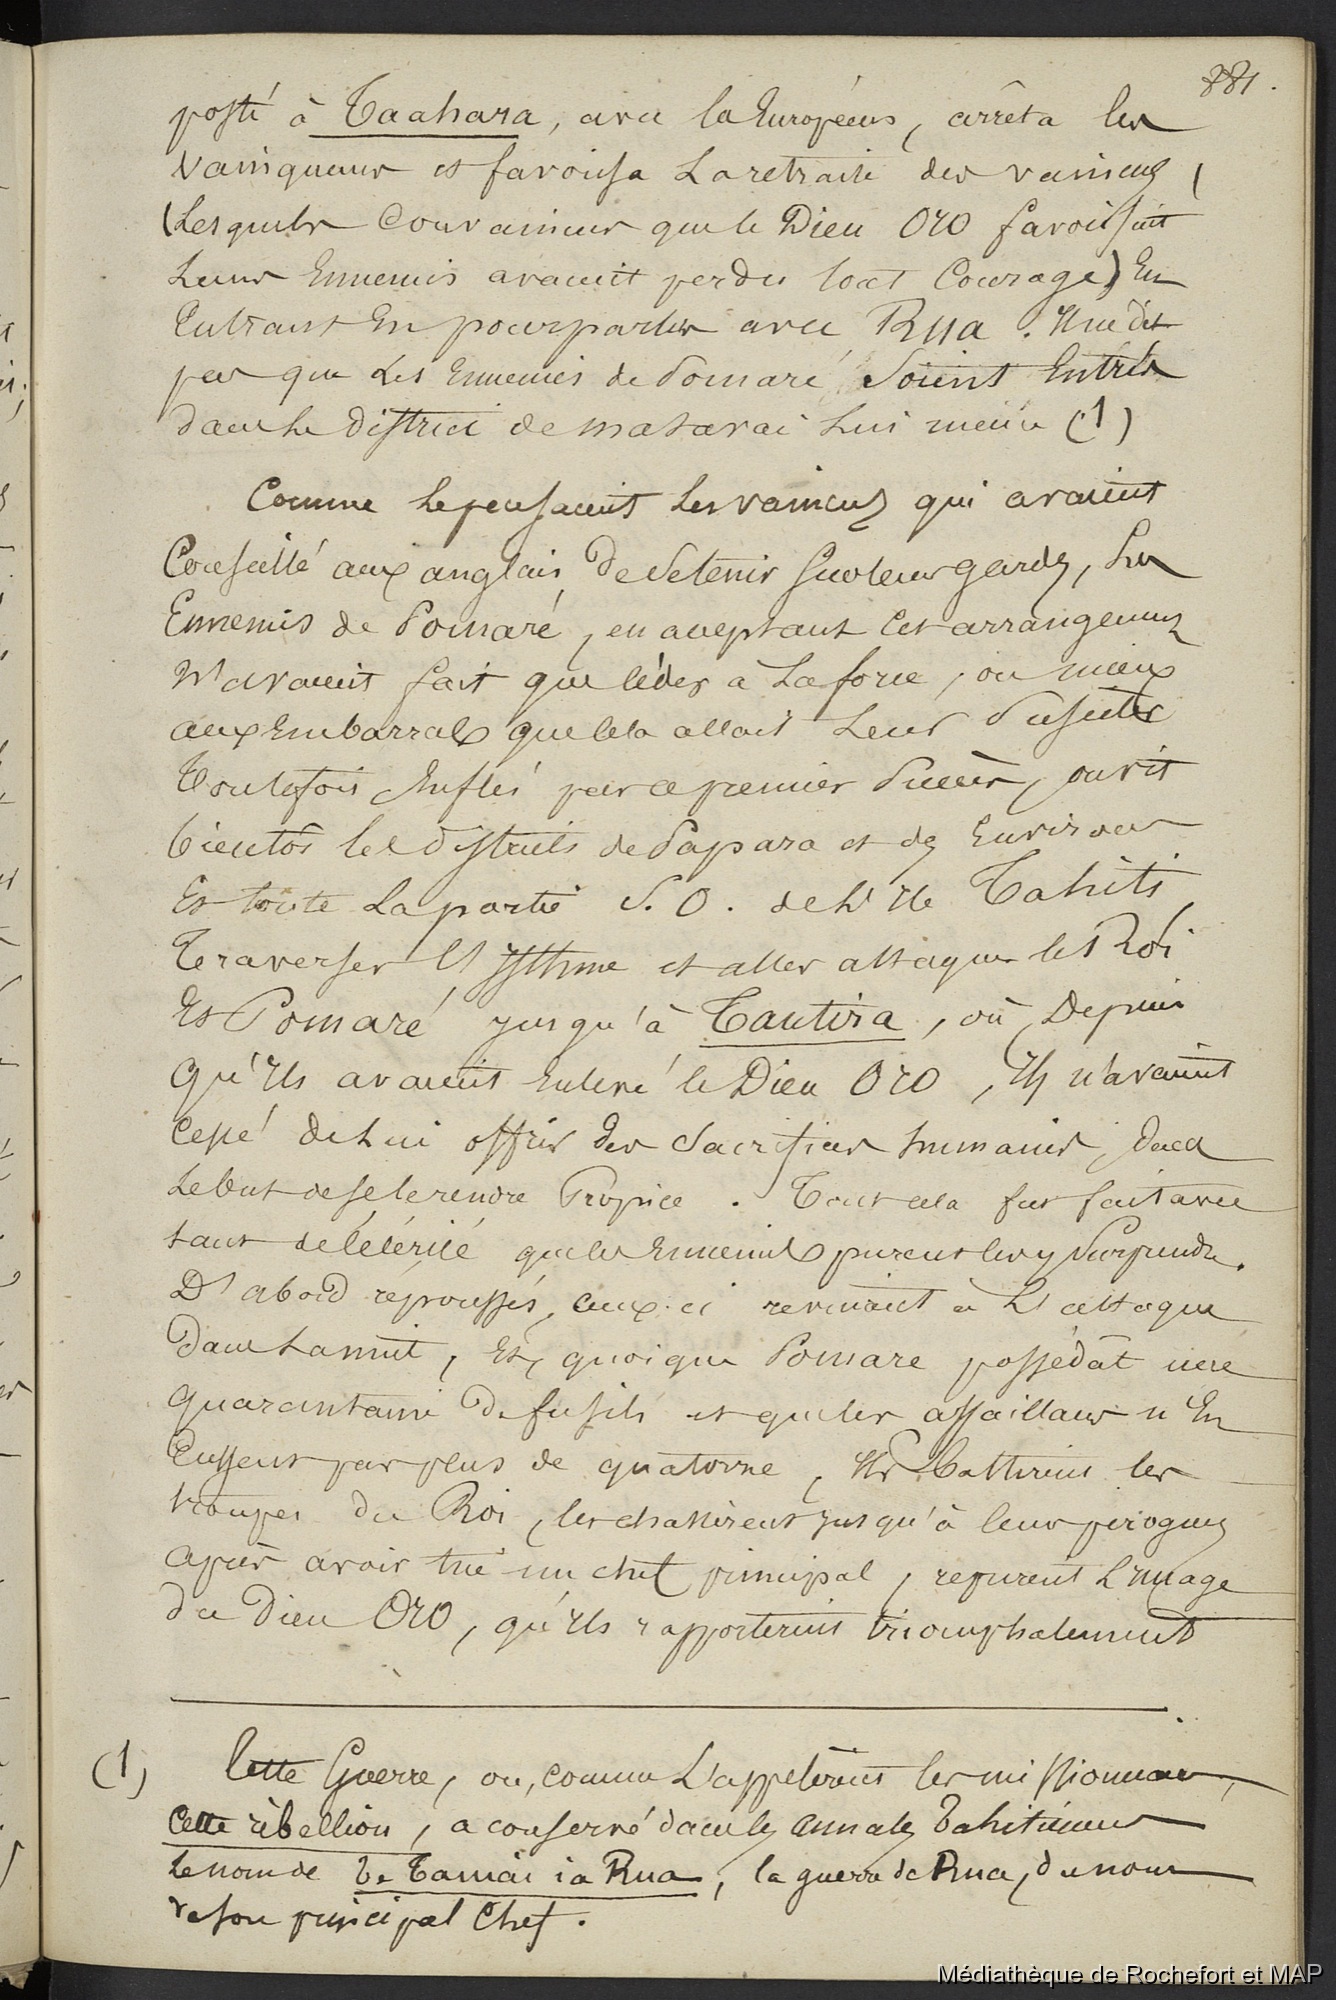 881.
posté à Taahara, avec les Européens, arrêta les
vainqueurs et favorisa la retraite des vaincus,
(Lesquels convaincus que le Dieu Oro favorisait
Leurs Ennemis avaient perdu tout Courage) En
Entrant En pourparlers avec Rua.
pas que Les Ennemis de Pomaré soient Entrés
dans le district de matavai lui même (1)
Comme le pensaient les vaincus qui avaient
Conseillé aux anglais, de se tenir sur leurs gardes, les
Ennemis de Pomaré, en acceptant cet arrangement
n'avaient fait que céder à la force, ou mieux
aux Embarras que cela allait leur susciter
Toutefois Enflés par ce premier succès, on vit
bientôt les districts de Papara et des Environs
Et toute la partie S. O. de l'Ile Tahiti,
Traverser l'Isthme et aller attaquer le Roi
Et Pomaré jusqu'à Tautira, où, Depuis
Qu'Ils avaient Enlevé le Dieu Oro, Ils n'avaient
Cessé de lui offrir des Sacrifices humains, dans
le but de se le rendre Propice. Tout cela fut fait avec
tant de célérité que les Ennemis purent les y surprendre.
D'abord répoussés, ceux-ci revinrent à L'attaque
dans la nuit, Et, quoique Pomare possédât une
quarantaine de fusils et que les assaillans n'En
Eussent pas plus de quatorze, Ils battirent les
troupes du Roi, les chassèrent jusqu'à leurs pirogues
après avoir tué un chef principal, reprirent L'image
du Dieu Oro, qu'Ils rapportèrent triomphalement
(1) Cette Guerre, ou, comme L'appelèrent les missionnaires,
Cette rébellion, a conservé dans les annales Tahitiennes
le nom de Te Tamai ia Rua, la guerre de Rua, du nom
de son principal Chef.
Médiathèque de Rochefort et MAP